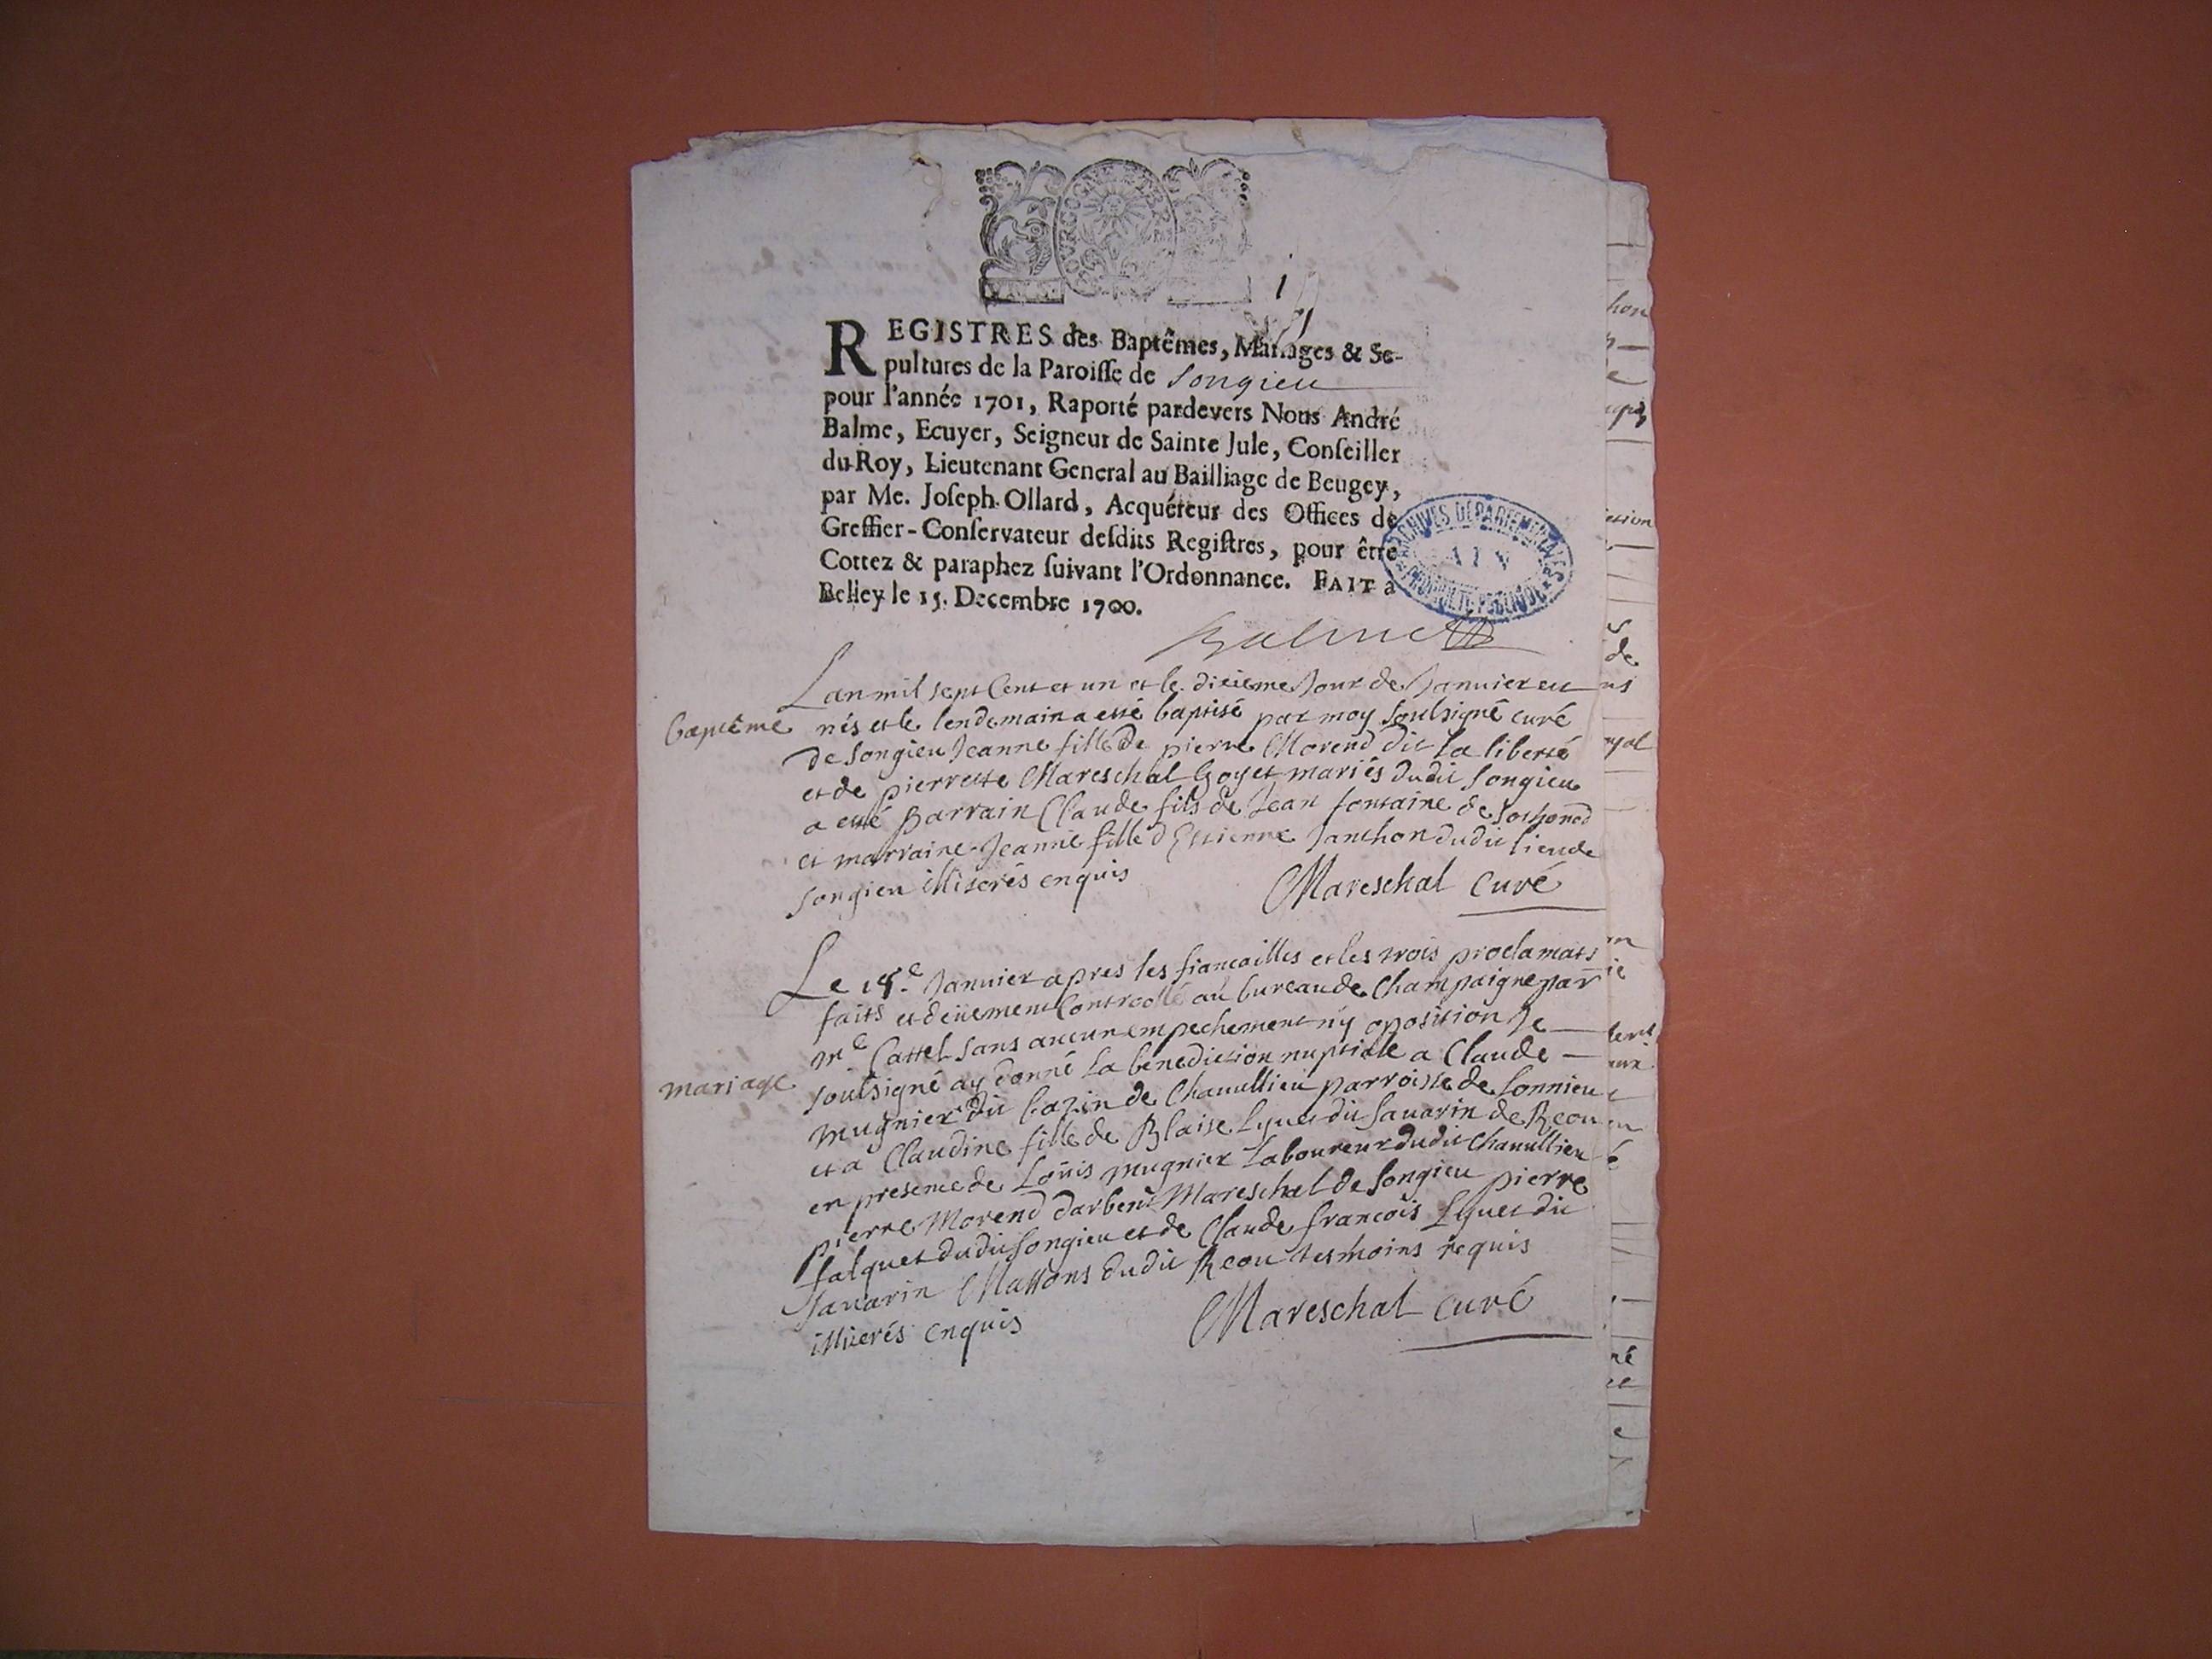 BOURGOGNE
1
REGISTRES des Baptêmes, Mariages & Se-
pultures de la Paroisse de Songieu
pour l'année 1701, Raporté pardevers Nous André
Balme, Ecuyer, Seigneur de Sainte Jule, Conseiller
du Roy, Lieutenant General au Bailliage de Beugey,
par Me. Joseph Ollard, Acquéreur des Offices de
Greffier-Conservateur desdits Registres, pour être
Cottez & paraphez suivant l'Ordonnance. FAIT a
Belley le 15. Decembre 1700.
ARCHIVES DÉPARTEMENTALES
AIN
PROPRIÉTÉ PUBLIQUE
Balme
baptême
Lan mil sept Cent et un et le dixieme Jour de Januier est
nés et le lendemain a esté baptisé par moy soubsigné curé
de Songieu Jeanne fille de pierre Morend dit la liberté
et de pierrette Mareschal Goyet mariés dudit Songieu
a esté parrain Claude fils de Jean fontaine de Sothonod
et marraine Jeanne fille d'Estienne Janthon dudit lieu de
Songieu illiterés enquis
Mareschal Curé
mariage
Le 18e Januier apres les fiancailles et les trois proclamats
faits et deüement Controollé au bureau de Champaigne par
Me Cattel sans aucun empechement ny oposition Je
soubsigné ay donné la benediction nuptiale a Claude
mugnier dit bazin de Chauillieu parroisse de Lonnieu
et a Claudine fille de Blaise Lyuet dit Sauarin de Reou
en presence de Loüis mugnier Laboureur dudit Chauillieu
pierre Morend darbent Mareschal de Songieu pierre
falquet dudit Songieu et de Claude francois Lyuet dit
Sauarin Massons dudit Reou tesmoins requis
illiterés enquis
Mareschal curé